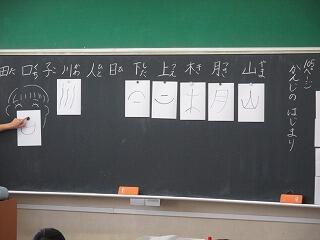 105ページ
かんじの はじまり
山やま
月つき
木き
上うえ
下した
日ひ
人ひと
川かわ
子こ
口くち
田た